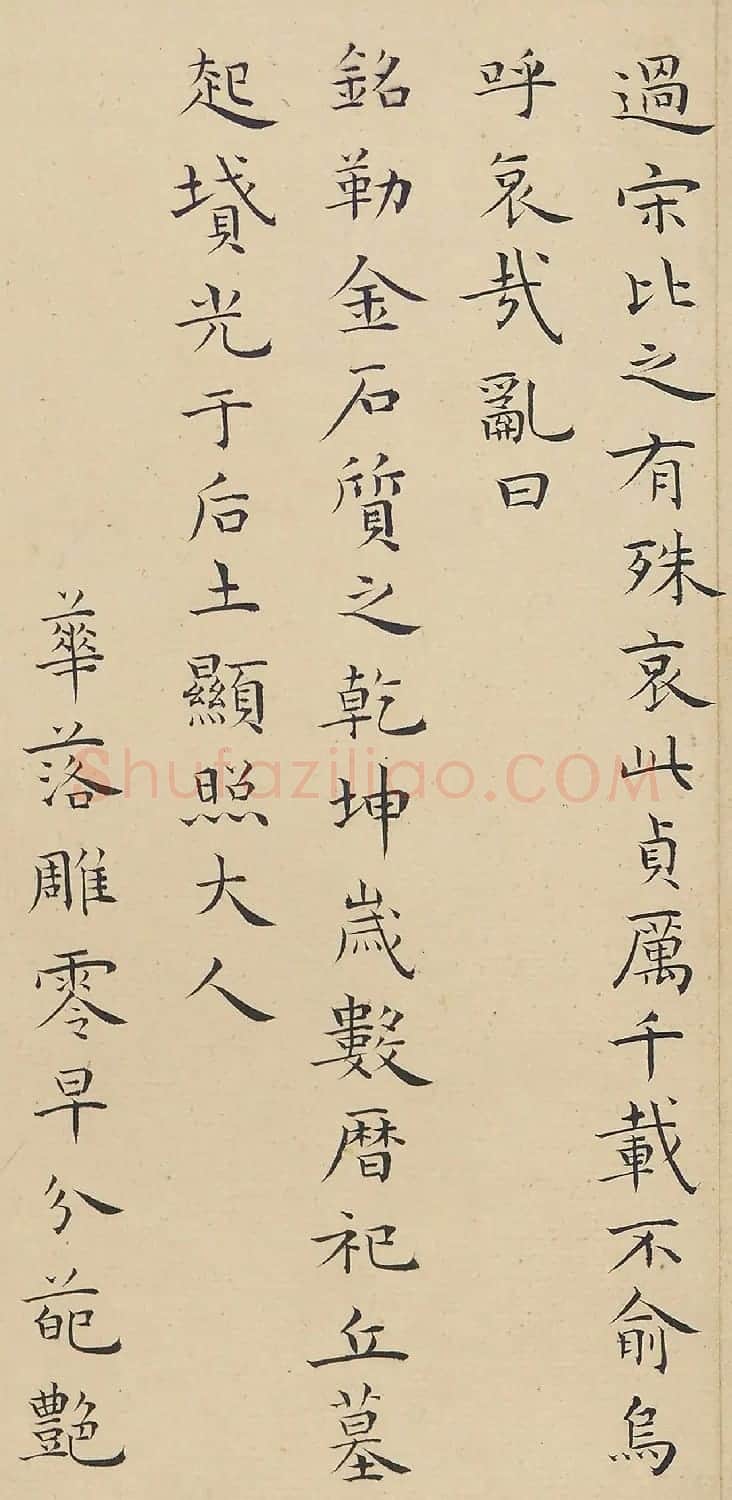 過宋比之有殊哀此貞厲千載不俞烏
呼哀哉亂曰
銘勒金石質之乾坤歲數暦祀丘墓
起墳光于后土顯照大人
華落雕零早分葩艶
Shufaziliao.COM